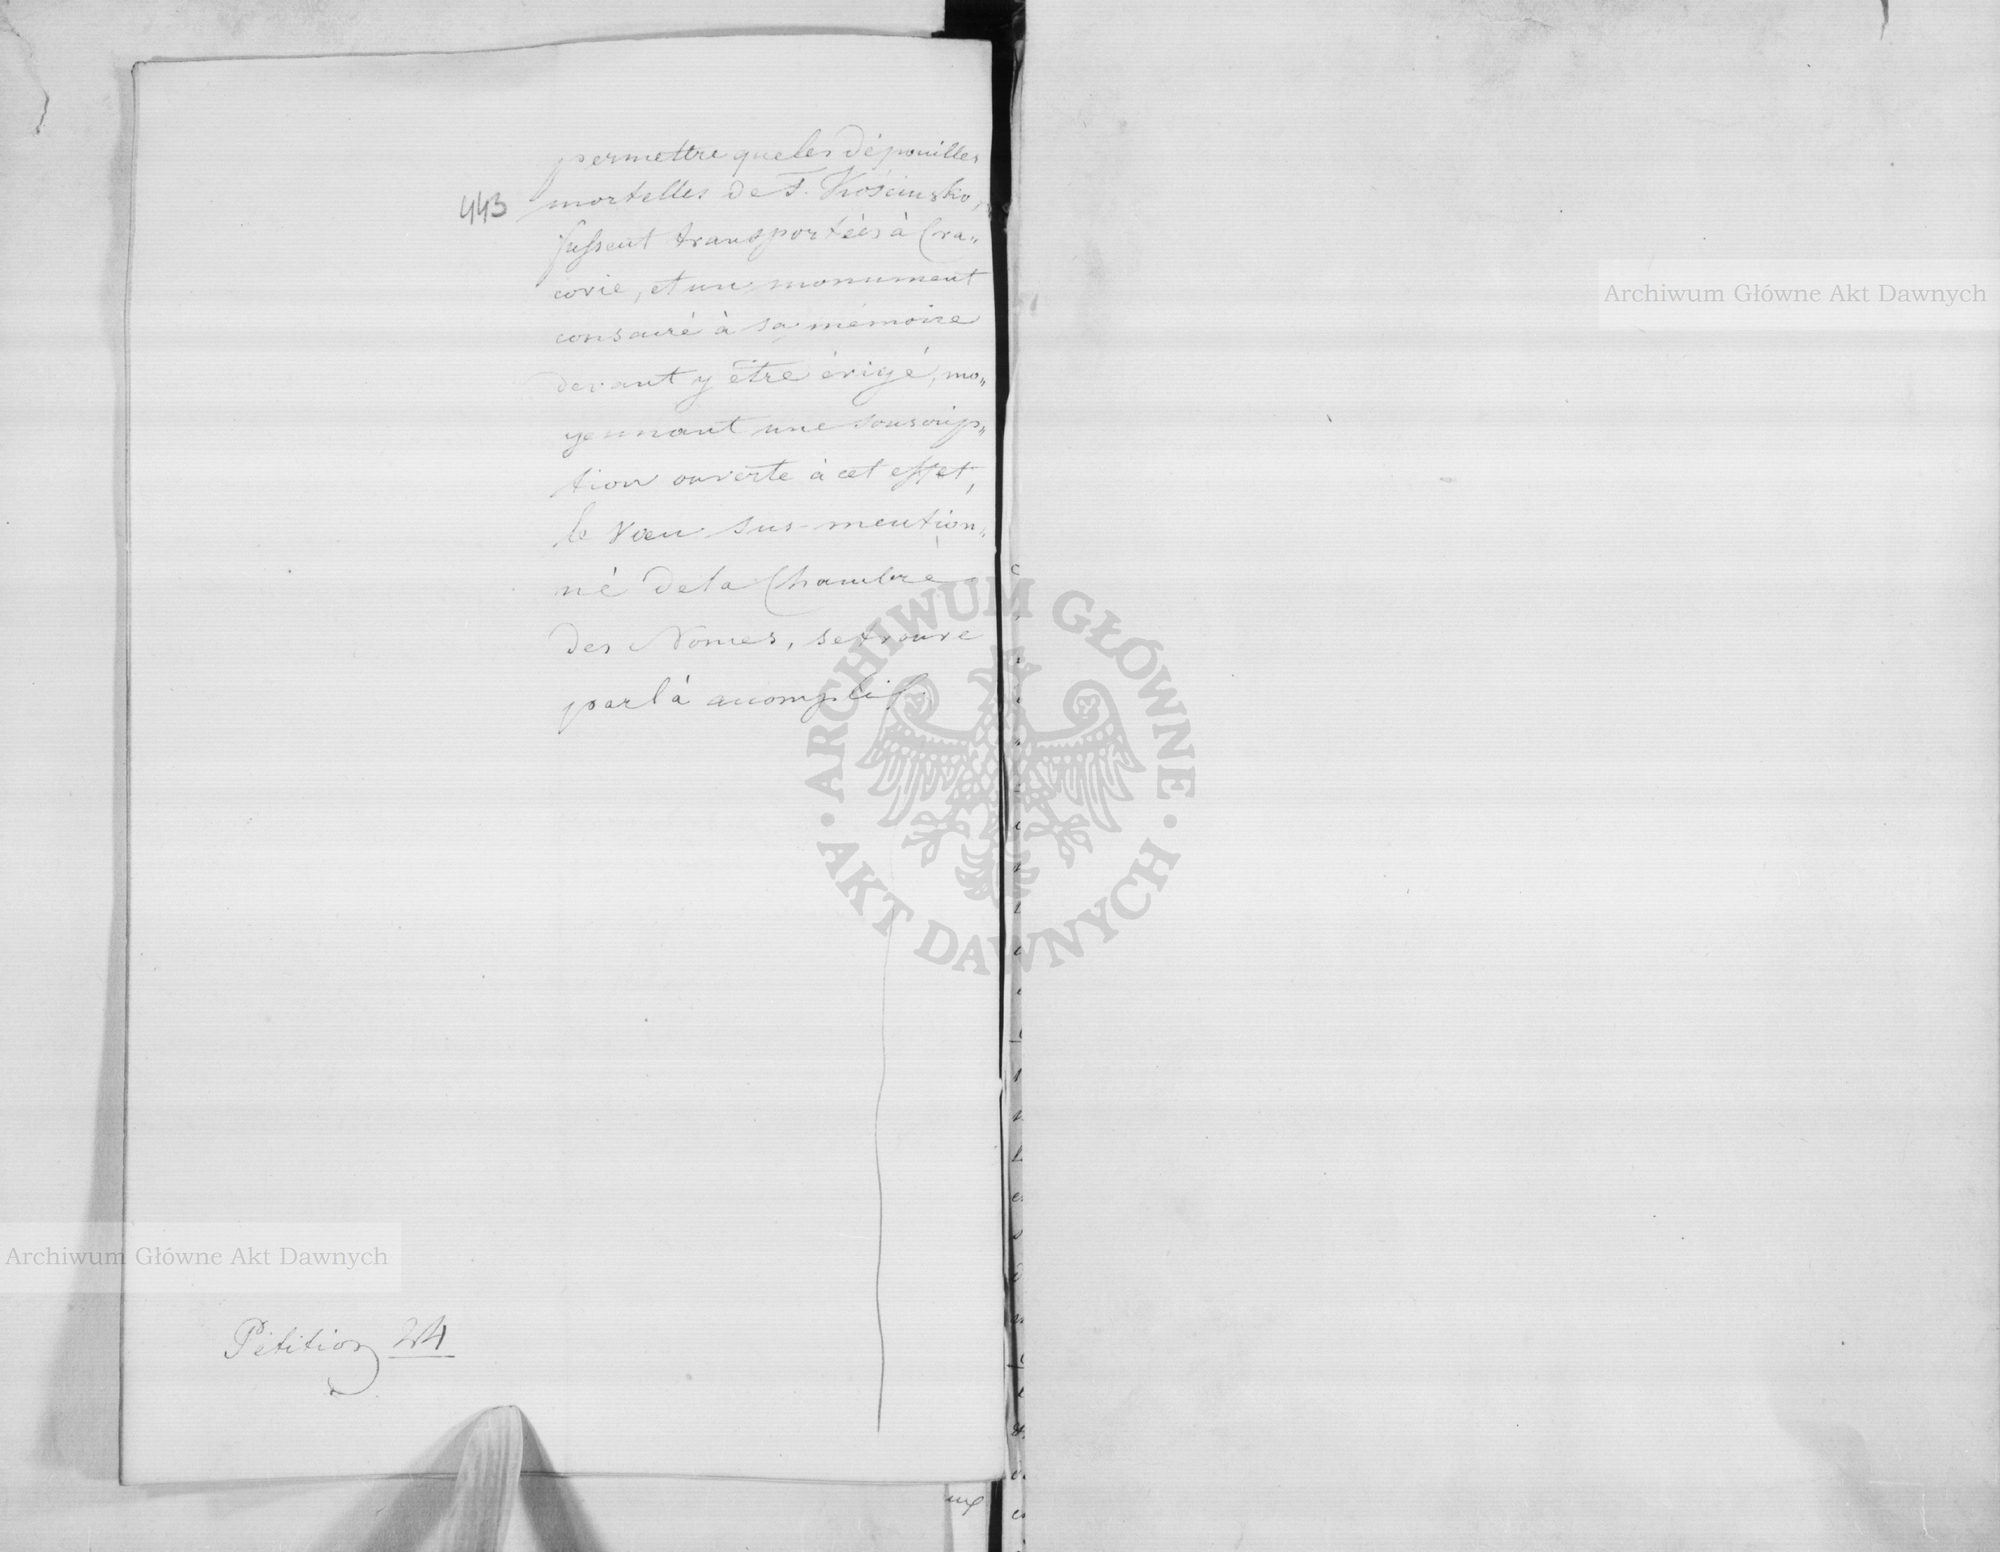 permettre que les dépouilles
443
mortelles de T. Kościuszko,
fussent transportées à Cra„
covie, et un monument
consacré à sa mémoire
devant y être érigé, mo„
yennant une souscrip„
tion ouverte à cet effet,
le vœu sus-mention„
né de la Chambre
des Nonces, se trouve
par là accompli.
Pétition 24
Archiwum Główne Akt Dawnych
Archiwum Główne Akt Dawnych
ARCHIWUM GŁÓWNE · AKT DAWNYCH ·